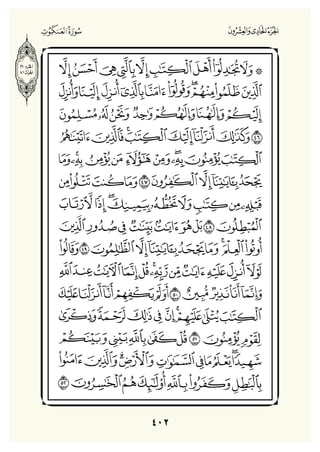 الجزء الحادي والعشرون سورة العنكبوت
۞ ولا تجادلوا أهل الكتاب إلا بالتي هي أحسن إلا
الذين ظلموا منهم وقولوا ءامنا بالذي أنزل إلينا وأنزل
إليكم وإلهنا وإلهكم واحد ونحن له مسلمون
٤٦ وكذلك أنزلنا إليك الكتاب فالذين ءاتيناهم
الكتاب يؤمنون به ومن هؤلاء من يؤمن به وما
يجحد بآياتنا إلا الكافرون ٤٧ وما كنت تتلوا من
قبله من كتاب ولا تخطه بيمينك إذا لارتاب
المبطلون ٤٨ بل هو ءايات بينات في صدور الذين
أوتوا العلم وما يجحد بآياتنا إلا الظالمون ٤٩ وقالوا
لولا أنزل عليه ءايات من ربه قل إنما الآيات عند الله
وإنما أنا نذير مبين ٥٠ أولم يكفهم أنا أنزلنا عليك
الكتاب يتلى عليهم إن في ذلك لرحمة وذكرى
لقوم يؤمنون ٥١ قل كفى بالله بيني وبينكم
شهيدا يعلم ما في السماوات والأرض والذين ءامنوا
بالباطل وكفروا بالله أولئك هم الخاسرون ٥٢
٤٠٢